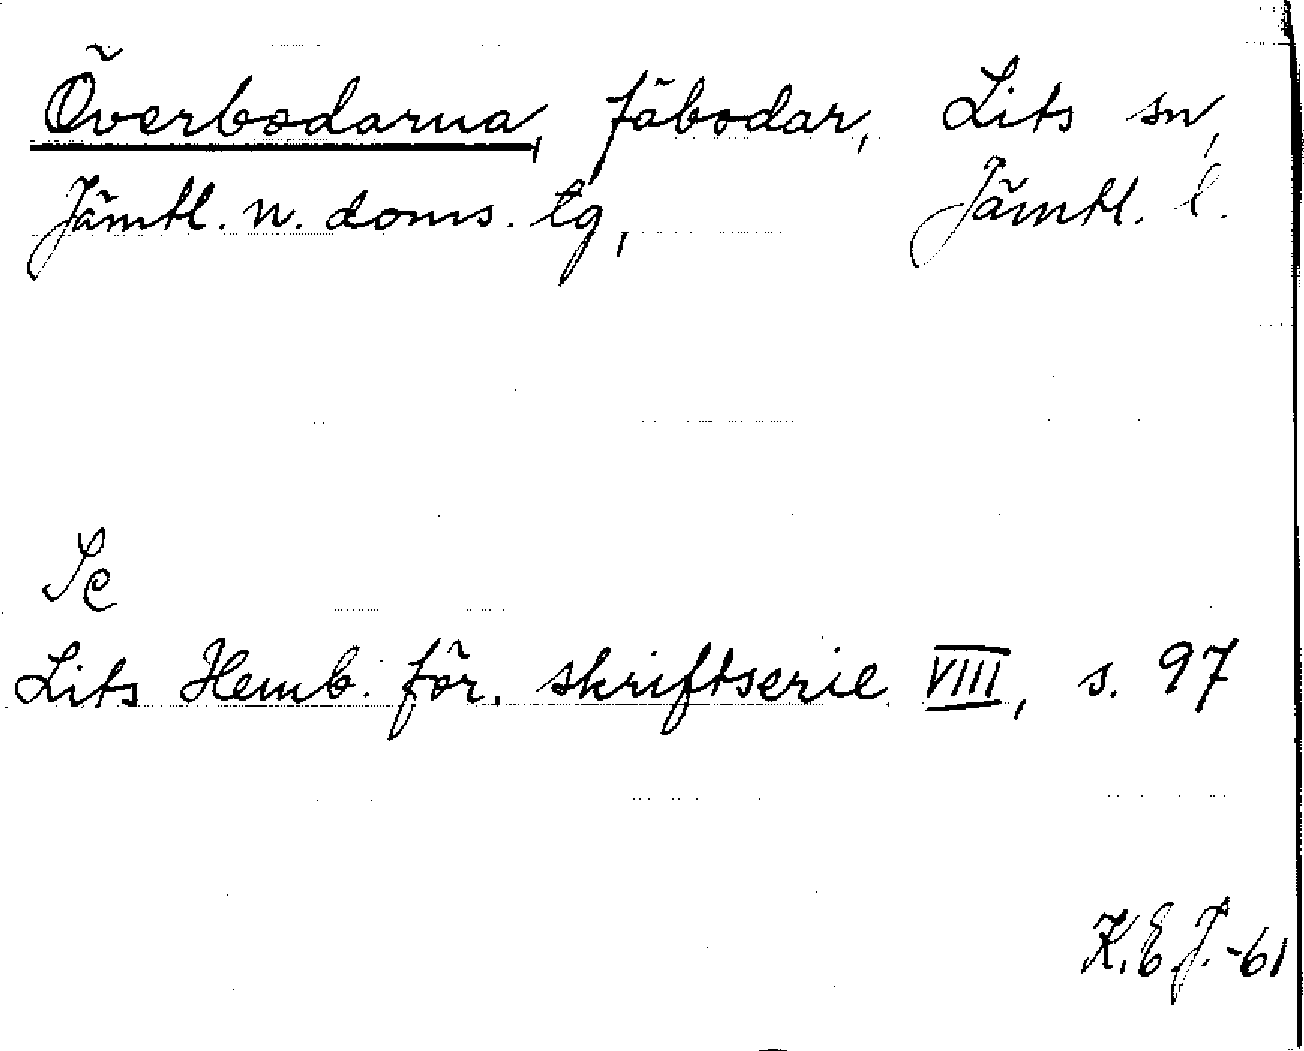 Överbodarna, fäbodar, Lits sn,
Jämtl. n. doms. tg, Jämtl. l.
Se
Lits Hemb. för. skriftserie VIII, s. 97
K.E.J. -61